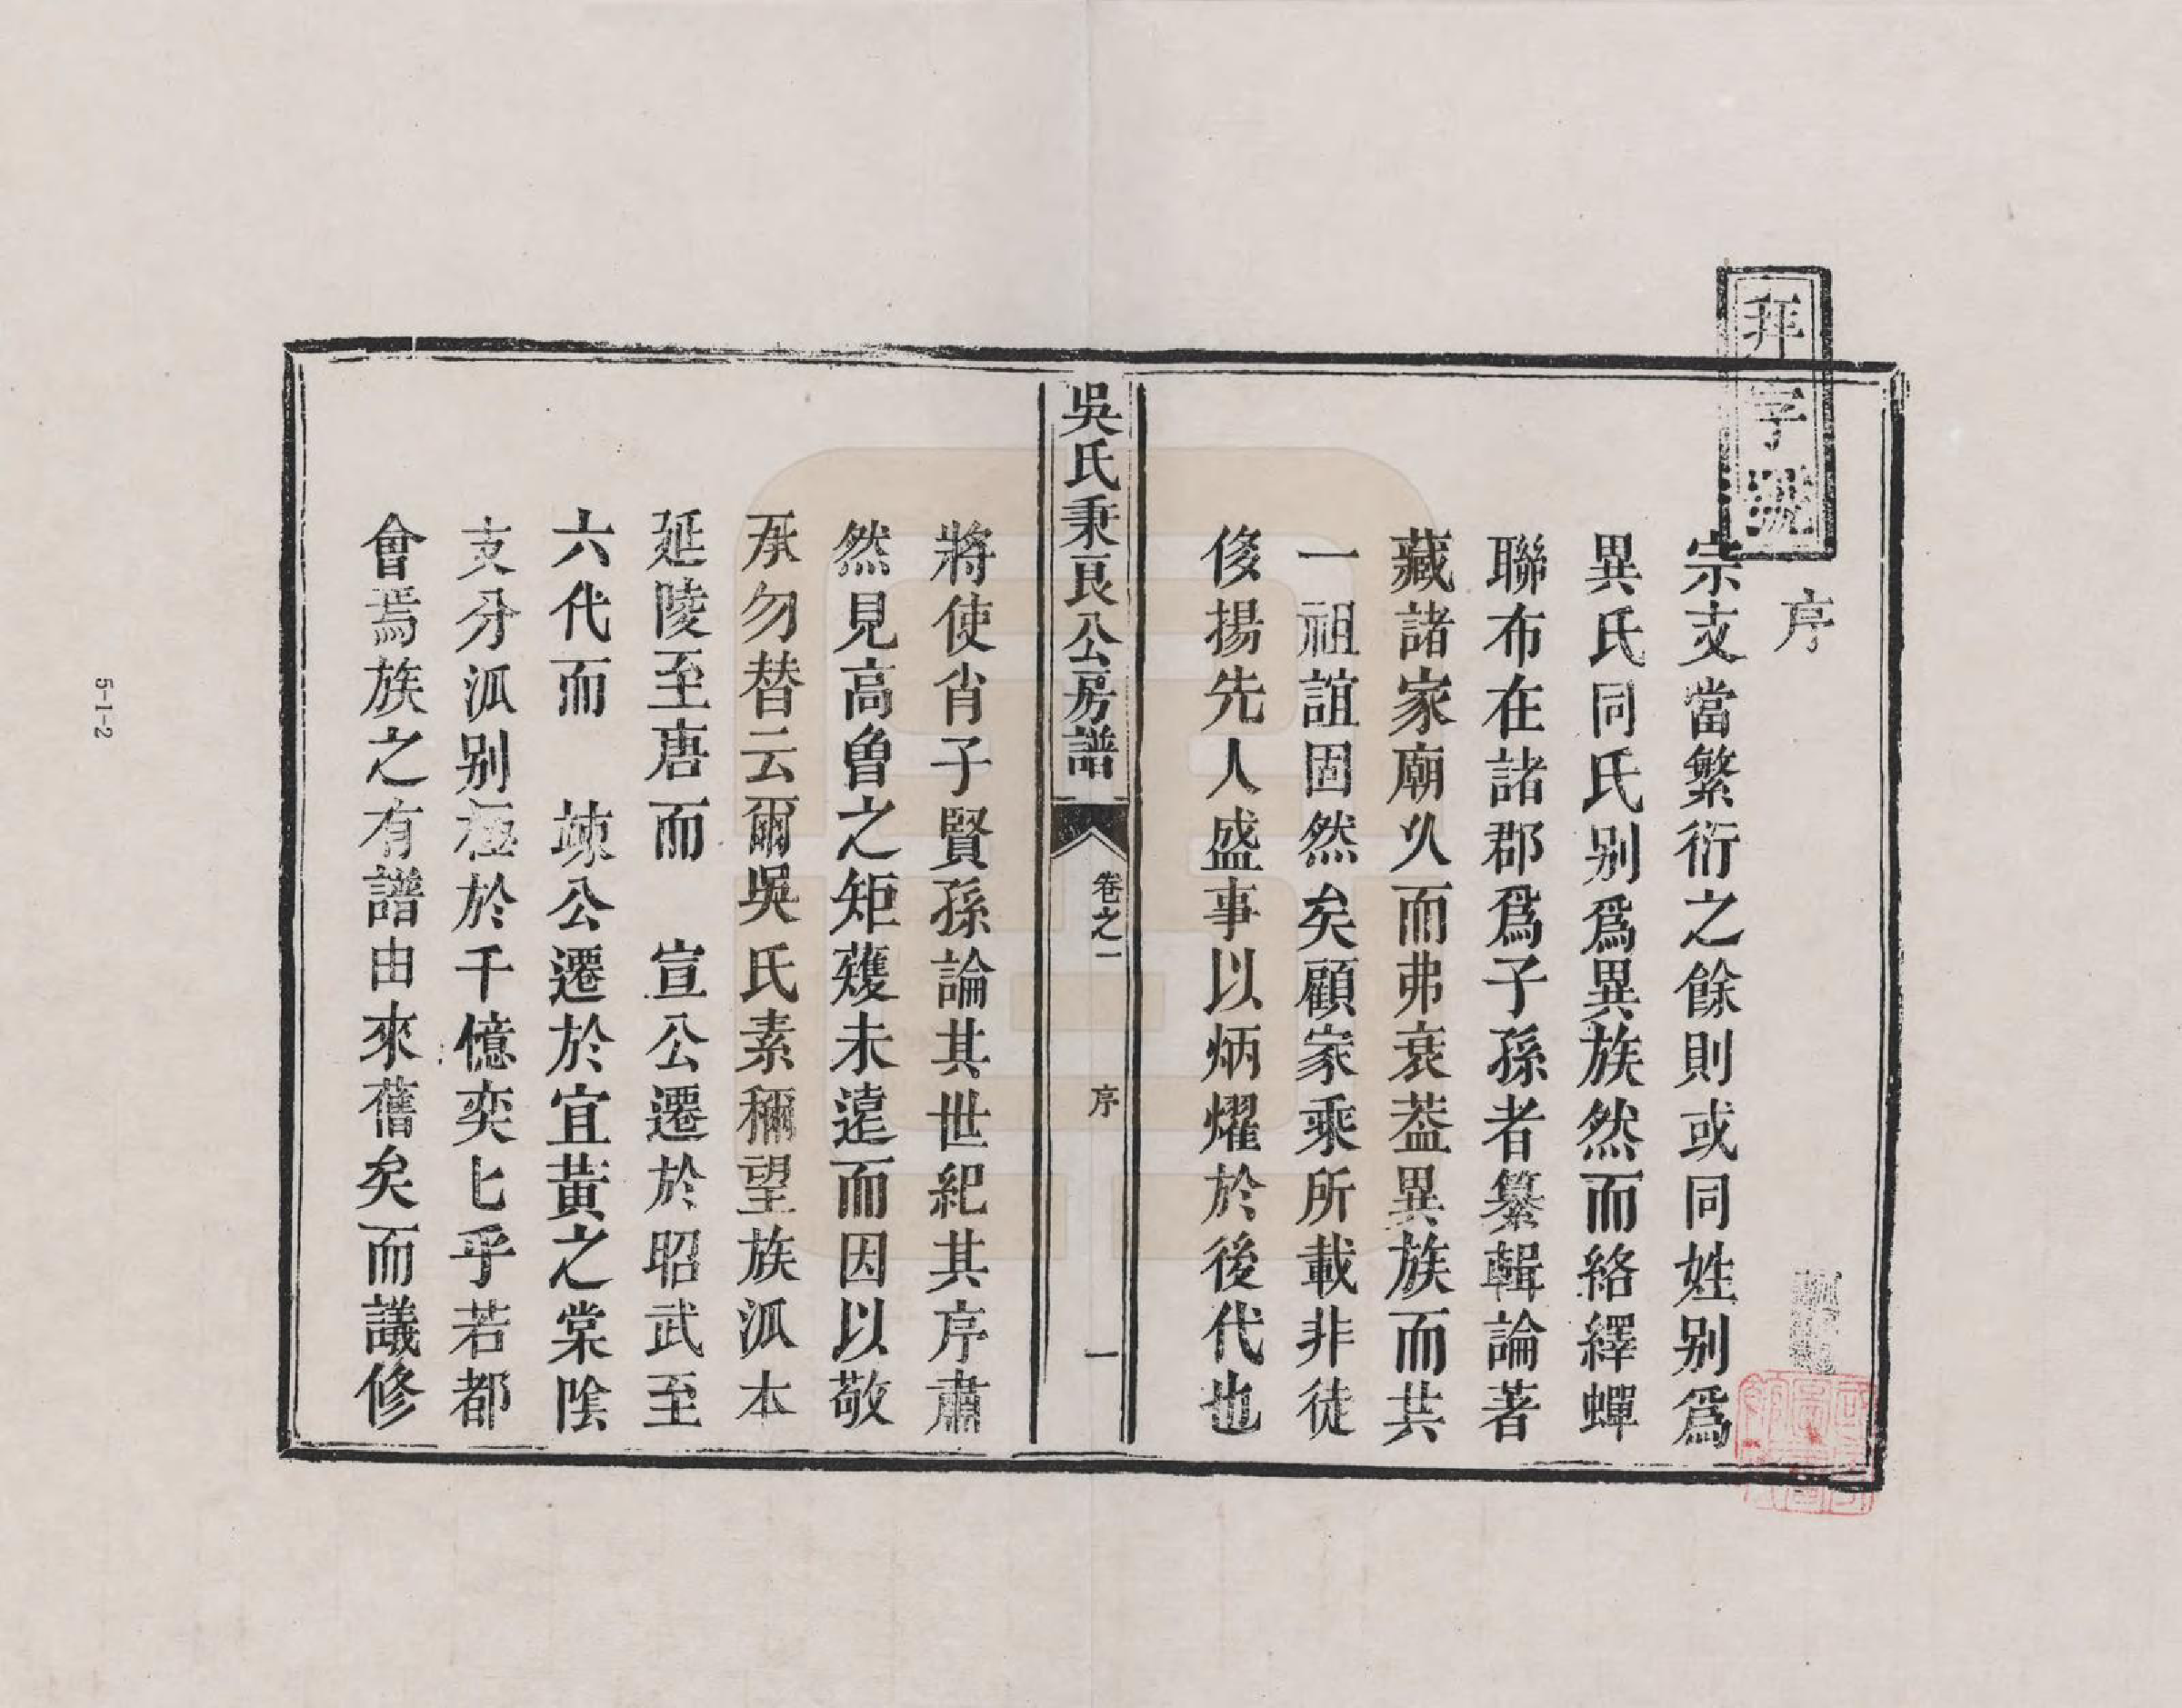 拜字號
序
宗支當繁衍之餘則或同姓别爲
異氏同氏别爲異族然而絡繹蟬
聯布在諸郡爲子孫者纂輯論著
藏諸家廟乆而弗衰葢異族而共
一祖誼固然矣顧家乘所載非徒
俊揚先人盛事以炳燿於後代也
吳氏秉良公房譜
卷之一
序
一
將使肖子賢孫論其世紀其序肅
然見高曾之矩矱未遠而因以敬
承勿替云爾吳氏素稱望族派本
延陵至唐而 宣公遷於昭武至
六代而 竦公遷於宜黃之棠陰
支分派别極於千億奕匕乎若都
會焉族之有譜由來舊矣而議修
5-1-2